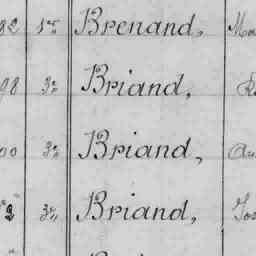 92 1re Brenand, Ma
98 3e Briand,
00 3e Briand, Au
3e Briand, Jos